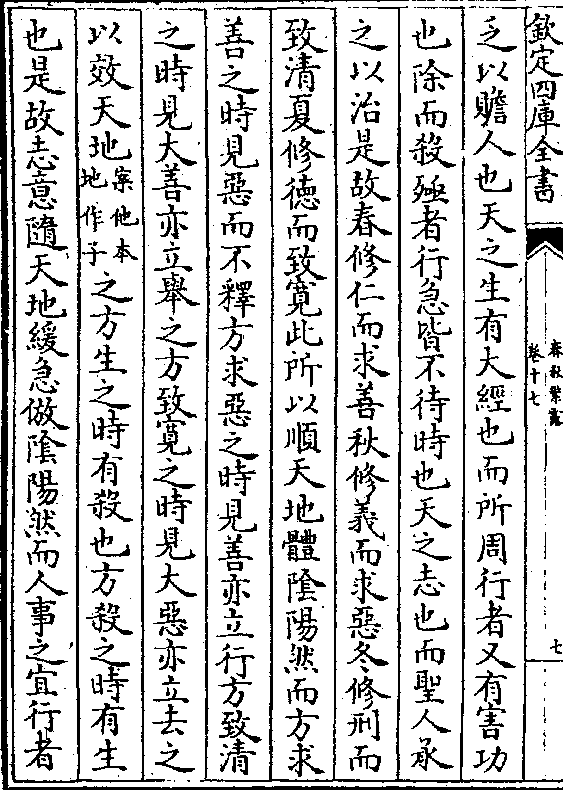 欽定四庫全書
春秋繁露
卷十七
七
乏以贍人也天之生有大經也而所周行者又有害功
也除而殺殛者行急皆不待時也天之志也而聖人承
之以治是故春修仁而求善秋修義而求惡冬修刑而
致清夏修德而致寛此所以順天地體隂陽然而方求
善之時見惡而不釋方求惡之時見善亦立行方致清
之時見大善亦立舉之方致寛之時見大惡亦立去之
以效天地案他本地作子之方生之時有殺也方殺之時有生
也是故志意隨天地緩急倣隂陽然而人事之宜行者